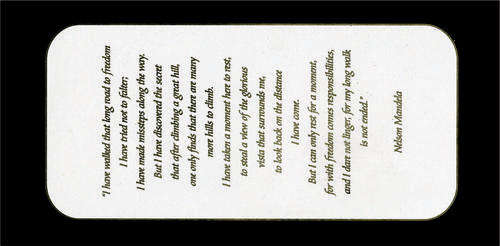 "I have walked that long road to freedom
I have tried not to falter;
I have made missteps along the way.
But I have discovered the secret
that after climbing a great hill,
one only finds that there are many
more hills to climb.
I have taken a moment here to rest,
to steal a view of the glorious
vista that surrounds me,
to look back on the distance
I have come.
But I can only rest for a moment,
for with freedom comes responsibilities,
and I dare not linger, for my long walk
is not ended."
Nelson Mandela